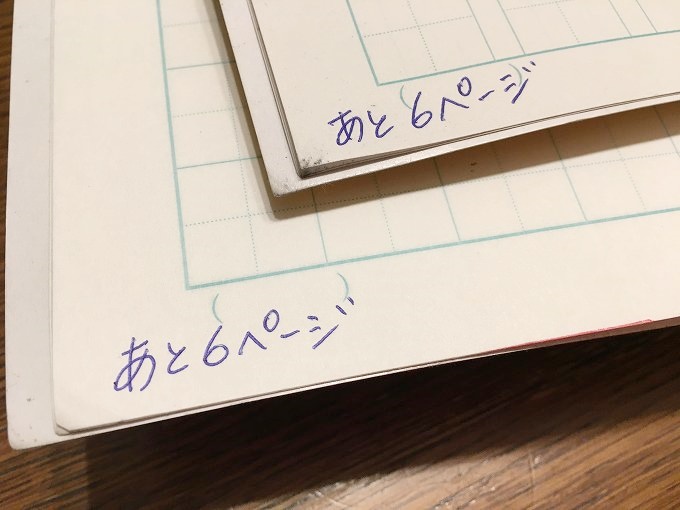 あと6ページ
あと6ページ